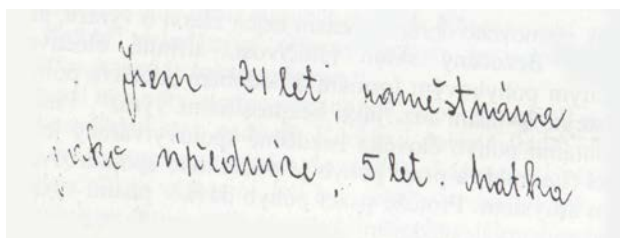 Jsem 24 let, zaměstnána
jako úřednice, 5 let. Matka